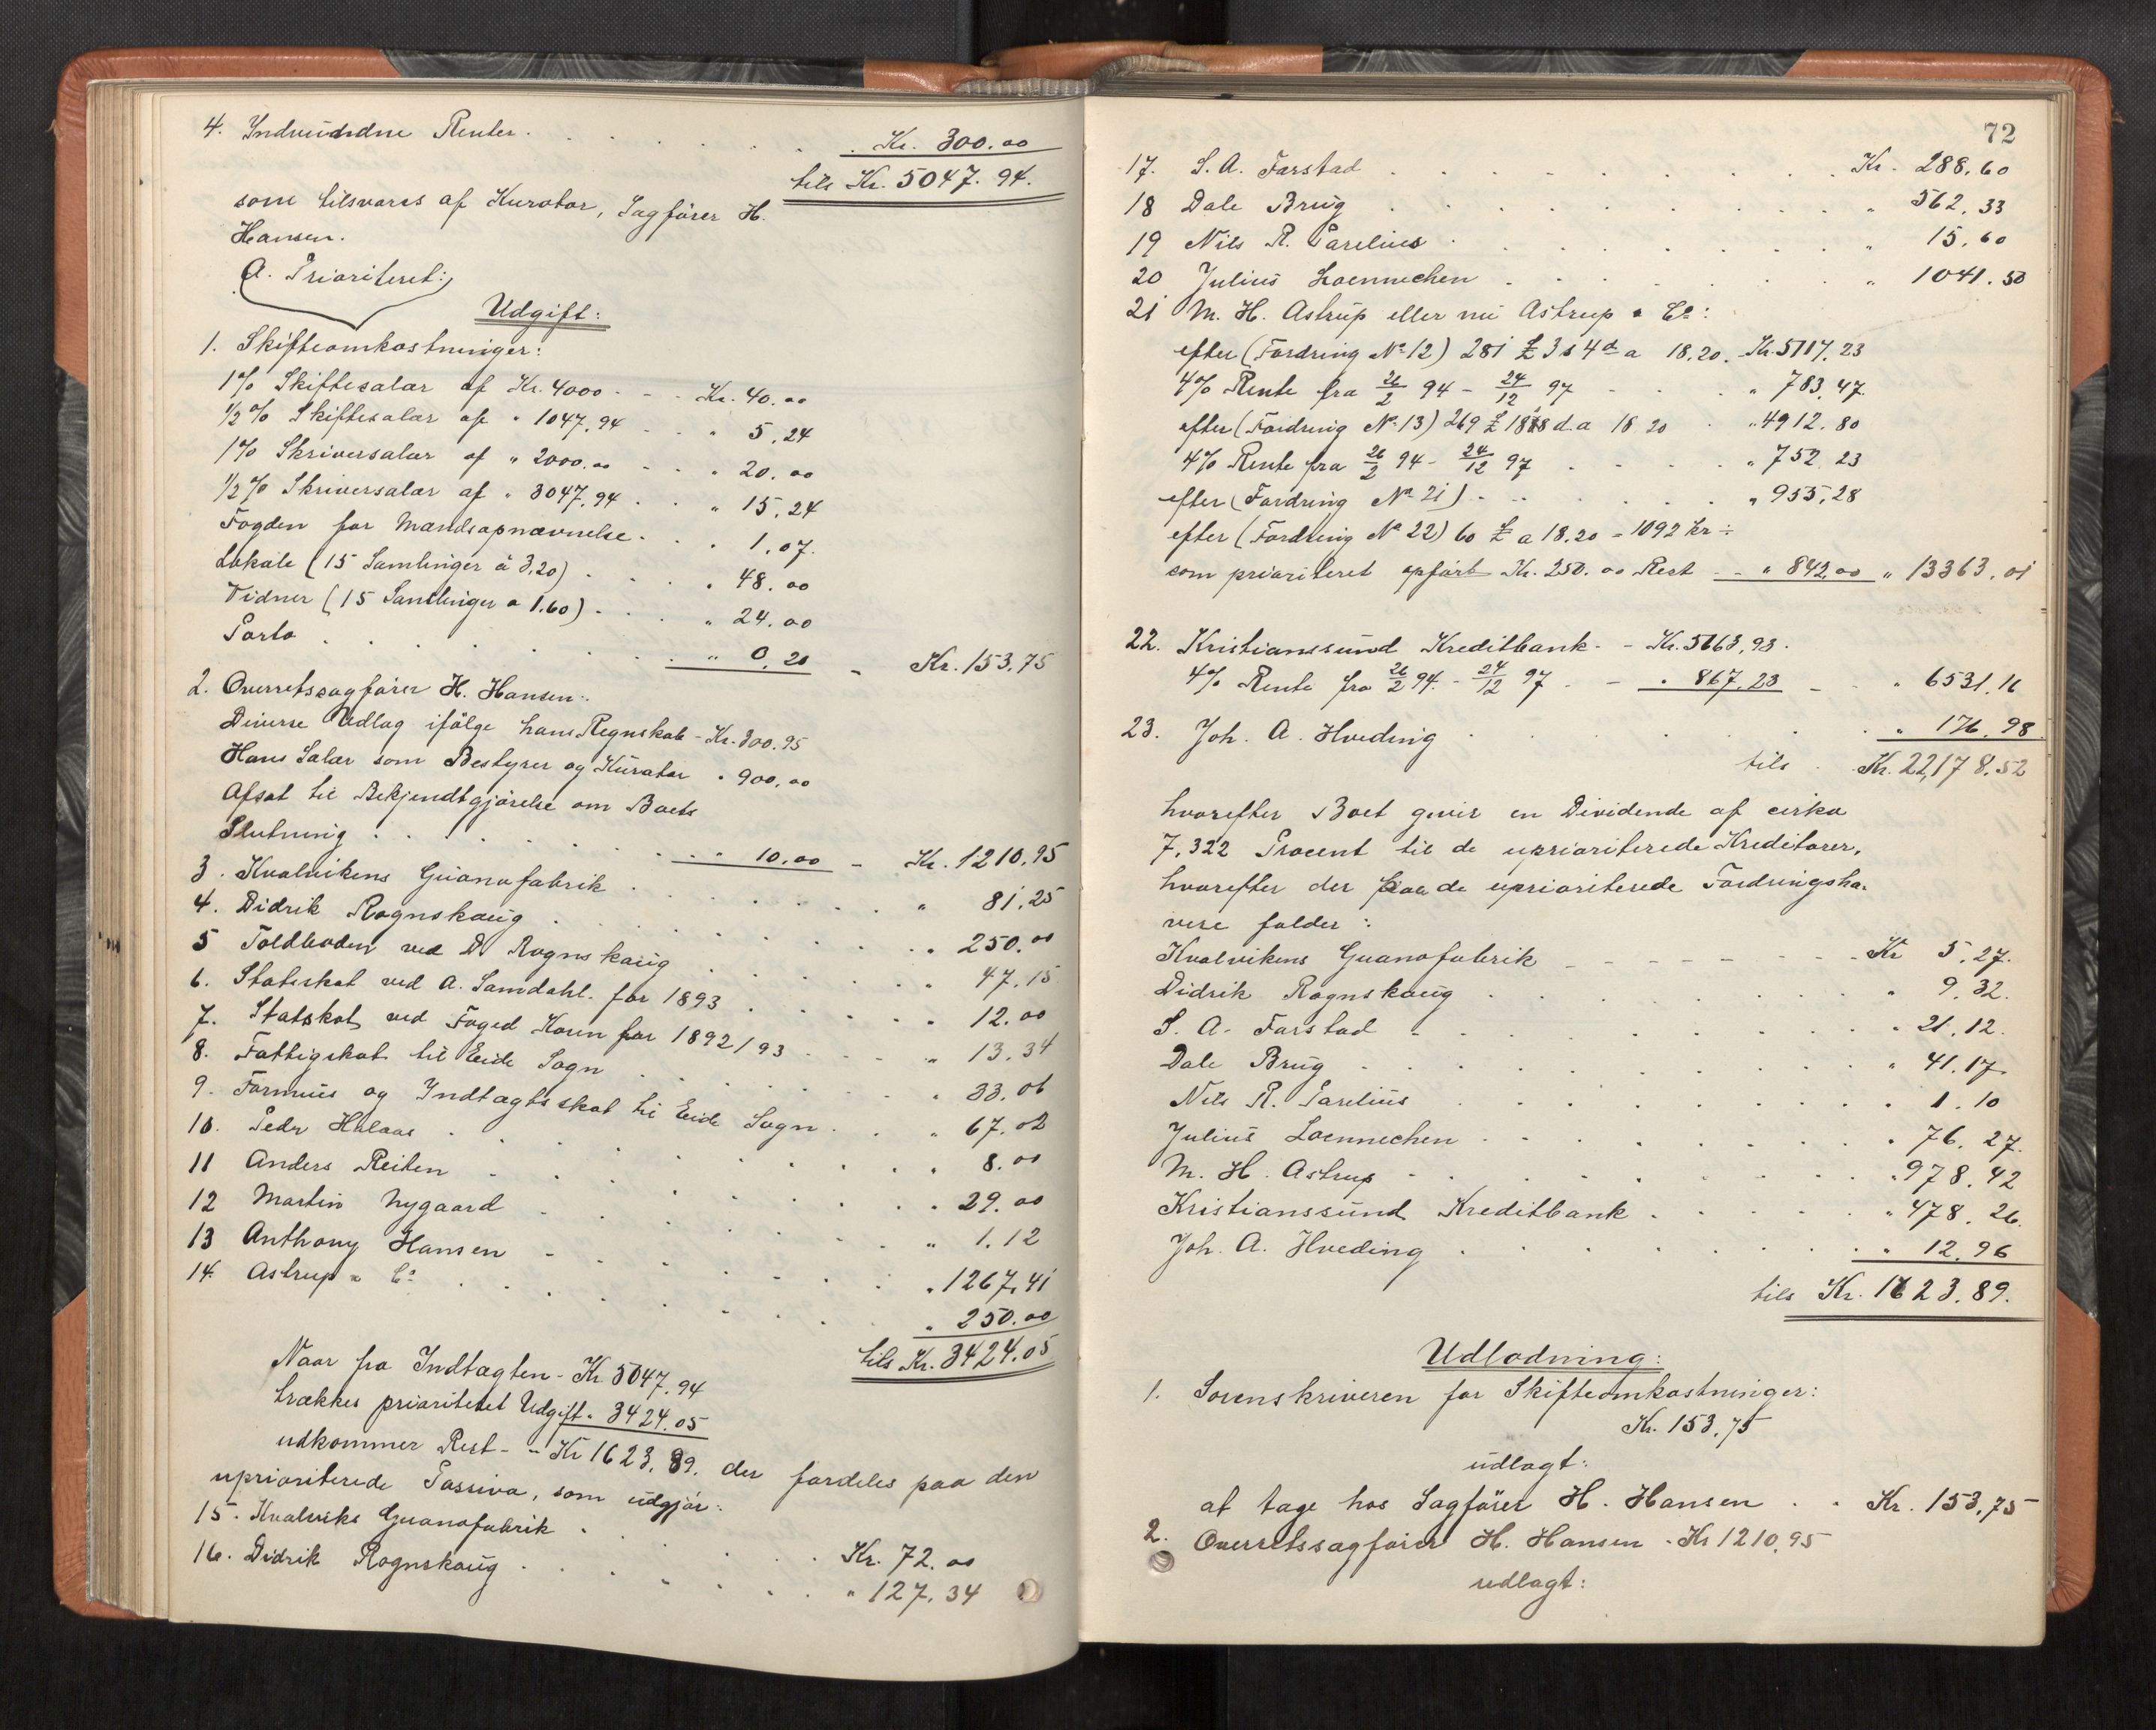 4. Indvundne Renter . . . . . . Kr. 300.00
tils Kr. 5047.94.
som tilsvares af Kurator, Sagfører H.
Hansen.
A. Prioriteret:
Udgift:
1. Skifteomkostninger:
1% Skiftesalær af Kr. 4000 - - Kr. 40.00
1/2% Skiftesalær af " 1047.94 - " 5.24
1% Skriversalær af " 2000.00 - - " 20.00
1/2% Skriversalær af " 3047.94 . . " 15.24
Fogden for Mandsopnævnelse . . . 1.07.
Lokale (15 Samlinger á 3.20) . . " 48.00
Vidner (15 Samlinger a 1.60) . . . " 24.00
Porto . . . . . . " 0.20 - Kr. 153.75
2. Overretssagfører H. Hansen:
Diverse Udlag ifölge hans Regnskab - Kr. 300.95
Hans Salær som Bestyrer og Kurator " 900.00
Afsat til Bekjendtgjörelse om Boets
Slutning . . . . . . . " 10.00 - Kr. 1210.95
3. Kvalvikens Guanofabrik . . . . . " 81.25
4. Didrik Rognskaug . . . . . . " 250.00
5 Toldboden ved D. Rognskaug . . . . " 47.15
6. Statsskat ved A. Samdahl. for 1893 . . . . " 12.00
7. Statskat ved Foged Korn for 1892/93 . . . " 13.34
8. Fattigskat til Eide Sogn . . . . . " 33.06
9. Formues og Indtægtsskat til Eide Sogn . . " 67.02
10. Peder Halaas . . . . . . . " 8.00
11 Anders Reiten . . . . . . . " 29.00
12 Martin Nygaard . . . . . . " 1.12
13 Anthony Hansen . . . . . . " 1267.41
14. Astrup & Co . . . . . . . " 250.00
tils Kr. 3424.05
Naar fra Indtægten - Kr 5047.94
trækkes prioriteret Udgift " 3424.05
udkommer Rest - - Kr 1623.89. der fordeles paa den
uprioriterede Passiva, som udgjör:
15. Kvalviks Guanofabrik . . . . . Kr. 72.00
16. Didrik Rognskaug . . . . . . " 127.34
72
17. S. A. Farstad . . . . . . . Kr. 288.60
18 Dale Brug . . . . . . . " 562.33
19 Nils R. Parelius . . . . . . " 15.60
20 Julius Loennechen . . . . . . " 1041.50
21 M. H. Astrup eller nu Astrup & Co:
efter (Fordring No 12) 281 £ 3 s 4 d a 18.20. Kr. 5117.23
4% Rente fra 26/2 94 - 24/12 97 - - " 783.47.
efter (Fordring No 13) 269 £ 18 s 8 d. a 18.20 . " 4912.80
4% Rente fra 26/2 94 - 24/12 97 . . . . " 752.23
efter (Fordring No 21) - - . . . . " 955.28
efter (Fordring No 22) 60 £ a 18.20 = 1092 kr ÷
som prioriteret opført Kr. 250.00 Rest - - " 842.00 " 13363.01
22. Kristianssund Kreditbank - - Kr. 5663.93.
4% Rente fra 26/2 94. - 24/12 97 - - " 867.23 - - " 6531.16
23. Joh. A. Hveding . . . . . . " 176.98
tils . Kr. 22,178.52
hvorefter Boet giver en Dividende af cirka
7.322 Procent til de uprioriterede Kreditorer,
hvorefter der paa de uprioriterede Fordringsha-
vere falder:
Kvalvikens Guanofabrik - - - - - - - Kr 5.27.
Didrik Rognskaug . . . . . . " 9.32.
S. A. Farstad - . . . . . . " 21.12.
Dale Brug . . . . . . . " 41.17.
Nils R. Parelius . . . . . . " 1.10
Julius Loennechen . . . . . . " 76.27.
M. H. Astrup - . . . . . . " 978.42
Kristianssund Kreditbank . . . . . " 478.26.
Joh. A. Hveding . . . . . . " 12.96
tils Kr. 1623.89.
Udlodning:
1. Sorenskriveren for Skifteomkostninger:
Kr. 153.75
udlagt:
at tage hos Sagfører H. Hansen . . Kr. 153.75
2. Overretssagfører H. Hansen - Kr 1210.95
udlagt: